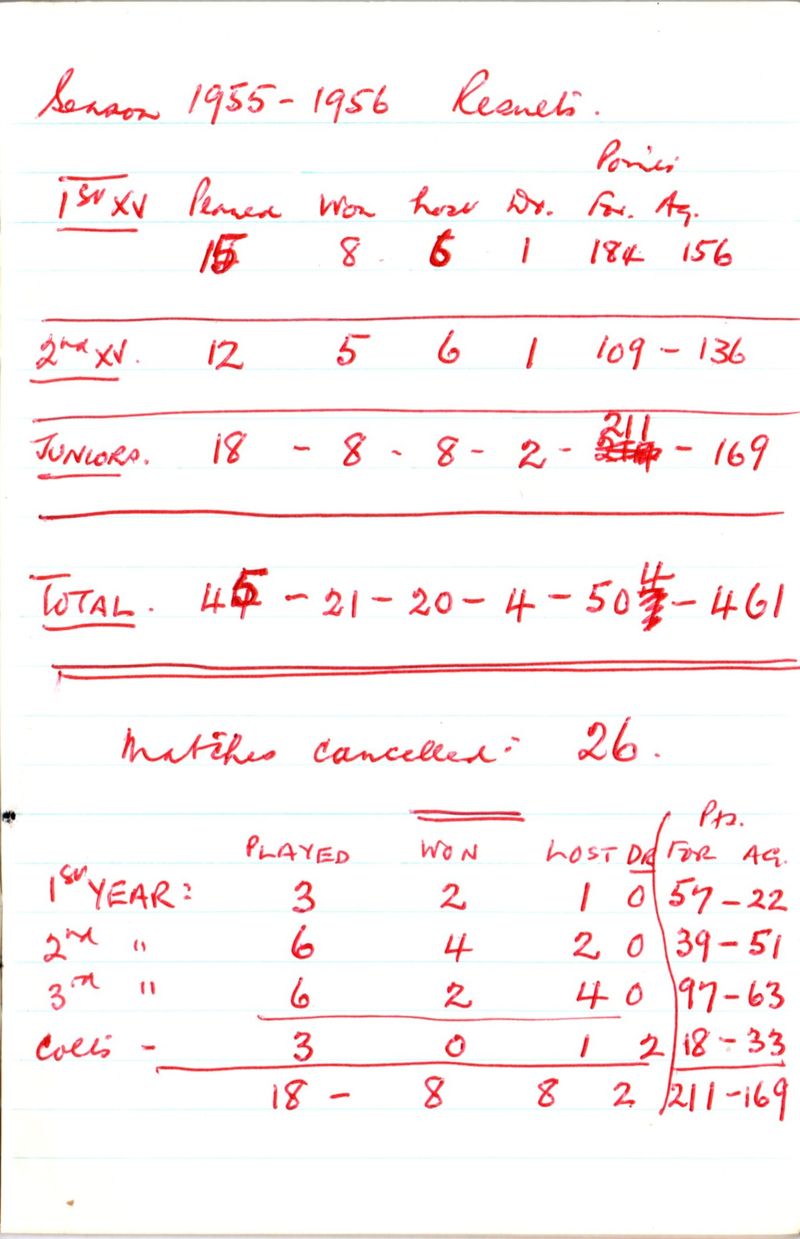 Season 1955-1956 Results.
Points
1st XV Played Won Lost Dr. For. Ag.
15 8 6 1 184 156
2nd XV. 12 5 6 1 109 - 136
JUNIORS. 18 - 8 - 8 - 2 - 211 - 169
TOTAL. 45 - 21 - 20 - 4 - 504 - 461
Matches cancelled:- 26.
Pts.
PLAYED WON LOST DR FOR AG.
1st YEAR: 3 2 1 0 57-22
2nd " 6 4 2 0 39-51
3rd " 6 2 4 0 97-63
Colts - 3 0 1 2 18-33
18 - 8 8 2 211-169